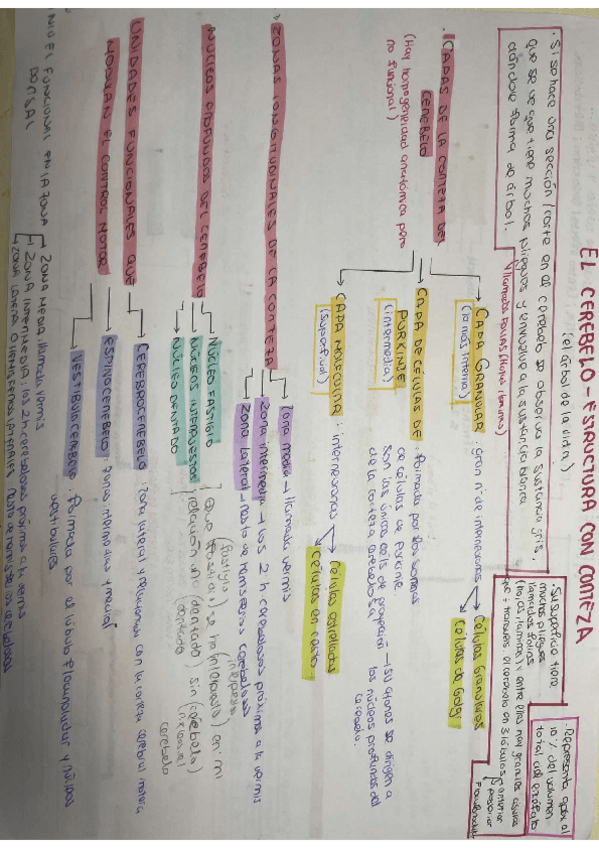 EL CEREBELO - ESTRUCTURA CON CORTEZA
(el árbol de la vida)
· Si se hace una sección/corte en el cerebelo se observa la sustancia gris,
que se ve que tiene muchos pliegues y envuelve a la sustancia blanca
dándole forma de árbol.
llamados FOLIAS
· Su superficie tiene
muchos pliegues
llamados folias
y entre ellas hay grandes cisuras
el cerebelo en 3 lóbulos
anterior
posterior
· Representa casi el
10% del volumen
total del encéfalo
· CAPAS DE LA CORTEZA DEL
CEREBELO
(Hay homogeneidad anatómica pero
no funcional)
CAPA GRANULAR: gran nº de interneuronas
(la más interna)
Células Granulares
Células de Golgi
CAPA DE CÉLULAS DE
PURKINJE
(intermedia)
: Formada por los somas
de células de Purkinje.
Son las únicas céls de proyección
de la corteza cerebelosa
→ Su axones se dirigen a
los núcleos profundos del
cerebelo.
CAPA MOLECULAR: interneuronas
(superficial)
Células estrelladas
Células en cesto
· ZONAS LONGITUDINALES DE LA CORTEZA
Zona media → llamada vermis
Zona intermedia → los 2 h. cerebelosos próximos a la vermis
Zona lateral → resto de hemisferios cerebelosos
NÚCLEOS PROFUNDOS DEL CEREBELO
NÚCLEO FASTIGIO
NÚCLEOS INTERPUESTOS
NÚCLEO DENTADO
(fastigio)
se ha
en mi
(dentado) sin (cerebelo)
cerebelo
UNIDADES FUNCIONALES QUE
MODULAN EL CONTROL MOTOR
CEREBROCEREBELO: zona lateral y relacionada con la corteza cerebral motora
ESPINOCEREBELO: zonas intermedias y medial
VESTIBULOCEREBELO: Formada por el lóbulo floculonodular y núcleos
vestibulares
NIVEL FUNCIONAL EN LA ZONA
DORSAL
ZONA MEDIA: llamada vermis
ZONA INTERMEDIA: los 2 h cerebelosos próximos a la vermis
ZONA LATERAL O HEMISFERIOS LATERALES: resto de hemisferios cerebelosos